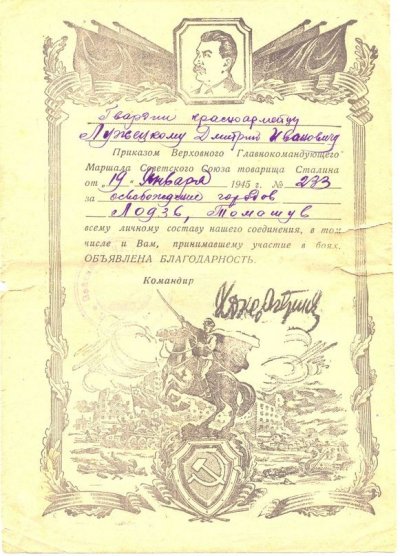 Гвардии красноармейцу
Лужецкому Дмитрий Иванович
Приказом Верховного Главнокомандующего
Маршала Советского Союза товарища Сталина
от 19 Января 1945 г. № 233
за освобождение городов
Лодзь, Томашув
всему личному составу нашего соединения, в том
числе и Вам, принимавшему участие в боях,
ОБЪЯВЛЕНА БЛАГОДАРНОСТЬ.
Командир